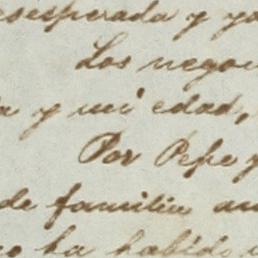 desesperada y yo
Los negoc
y mi edad,
Por Pepe y
de familia an
no ha habido